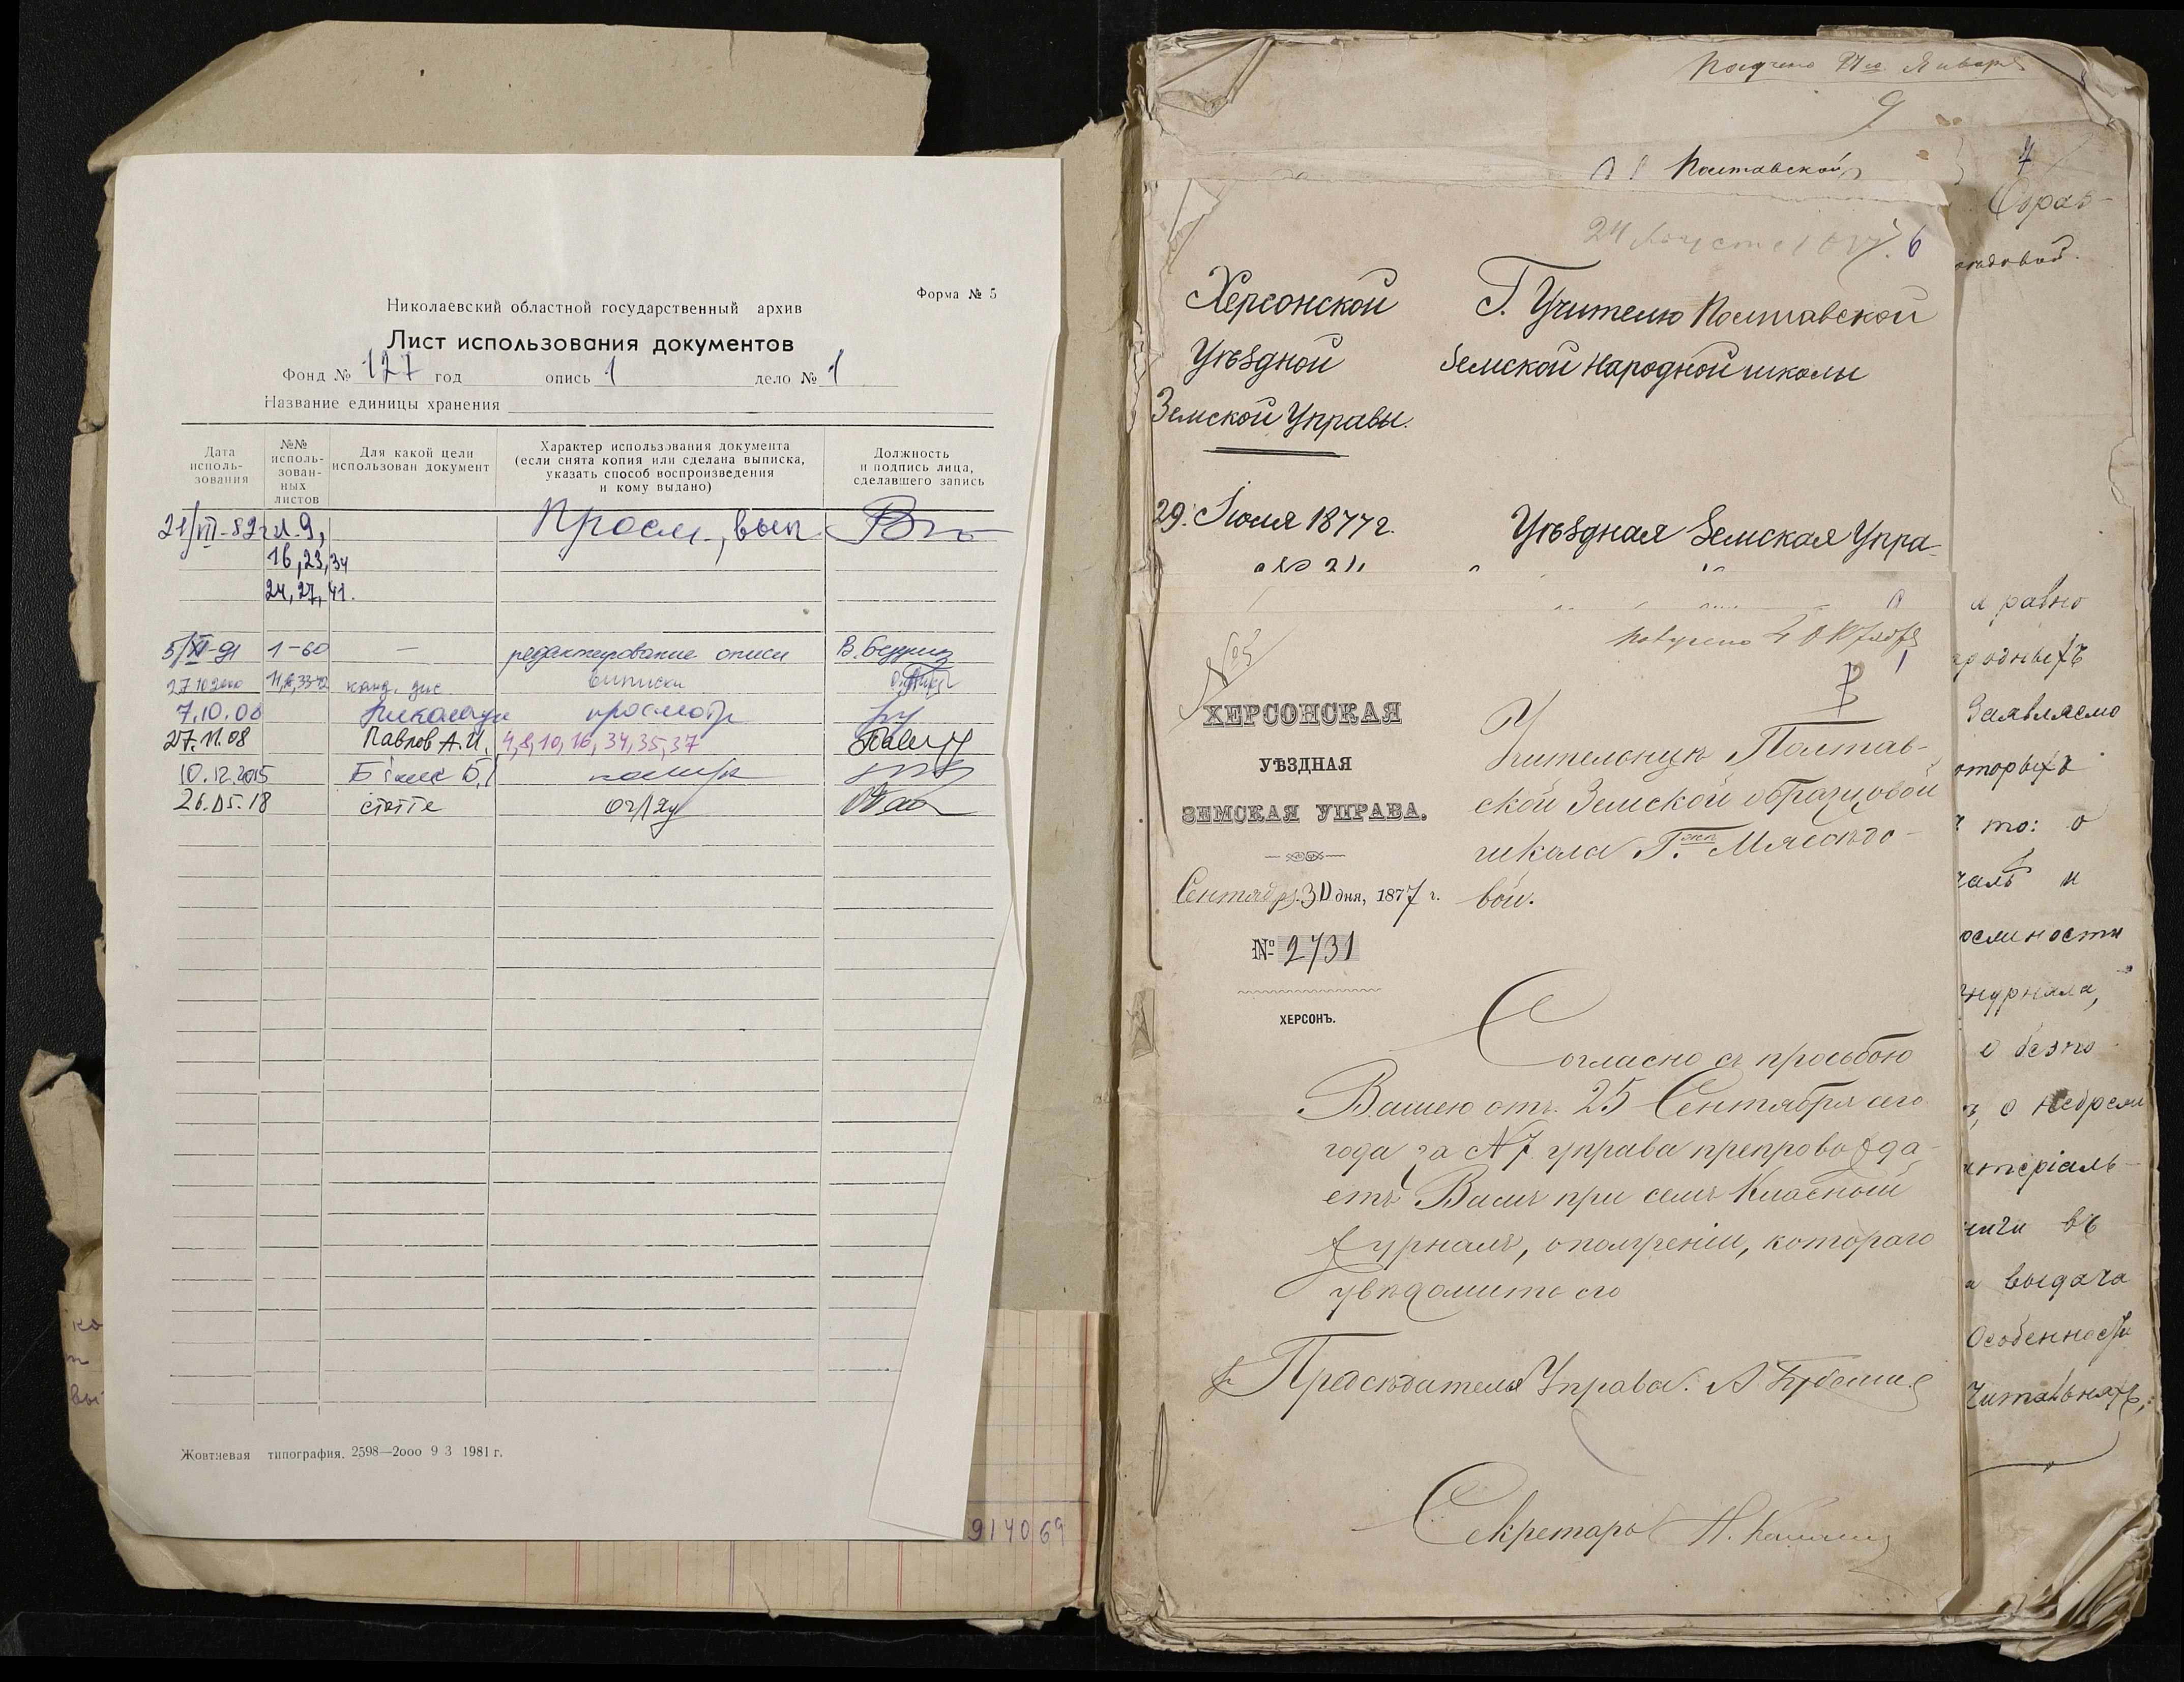 Форма № 5
Николаевский областной государственный архив
Лист использования документов
Фонд № 127 год опись 1 дело № 1
Название единицы хранения
Дата исполь-зования
№№ исполь-зован-ных листов
Для какой цели использован документ
Характер использования документа
(если снята копия или сделана выписка,
указать способ воспроизведения
и кому выдано)
Должность
и подпись лица,
сделавшего запись
21/VII-82г л. 9, Просм., вып
16, 23, 34
24, 27, 41.
5/XI-91 1-60 — редактирование описи
27.10.2000 канд. дис виписки
7.10.08 просмотр
27.11.08 Павлов А.И. 4, 8, 10, 16, 34, 35, 37
10.12.2015
26.05.18 стаття
Жовтневая типография. 2598—2000 9 3 1981 г.
914069
Января
9
Полтавской
24 Августа 6
Херсонской
Уѣздной
Земской Управы.
Г. Учителю Полтавской
Земской Народной школы
29. Іюля 1877 г.
Уѣздная Земская Упра-
получено 4 Октября
ХЕРСОНСКАЯ
УѢЗДНАЯ
ЗЕМСКАЯ УПРАВА.
Сентября 30 дня, 1877 г.
№ 2731
ХЕРСОНЪ.
Учительницѣ Полтав-
ской Земской образцовой
школы Г.жѣ Мясоѣдо-
вой.
Согласно съ просьбою
Вашею отъ 25 Сентября сего
года за № 7 управа препровожда-
етъ Вамъ при семъ Класный
журналъ, о полученіи, котораго
увѣдомите ею
Предсѣдателя Управы.
Секретарь
4
Образ-
а равно
родныхъ
Заявляемо
оторыхъ
то: о
чаль и
журнала,
о безпо
теріаль-
ниги въ
выдача
Особенности
читальняхъ,